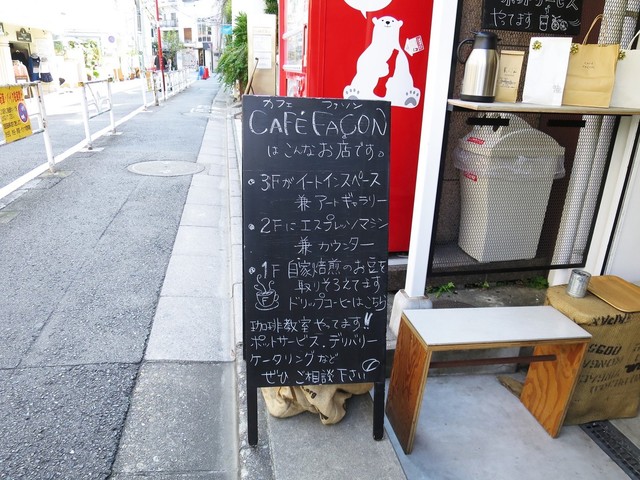 やってます
カフェ ファソン
CAFÉ FAÇON
はこんなお店です。
• 3Fがイートインスペース
兼 アートギャラリー
• 2Fにエスプレッソマシン
兼 カウンター
• 1F 自家焙煎のお豆を
取りそろえてます
ドリップコーヒーはこちら
珈琲教室やってます!!
ポットサービス、デリバリー
ケータリングなど
ぜひご相談下さい